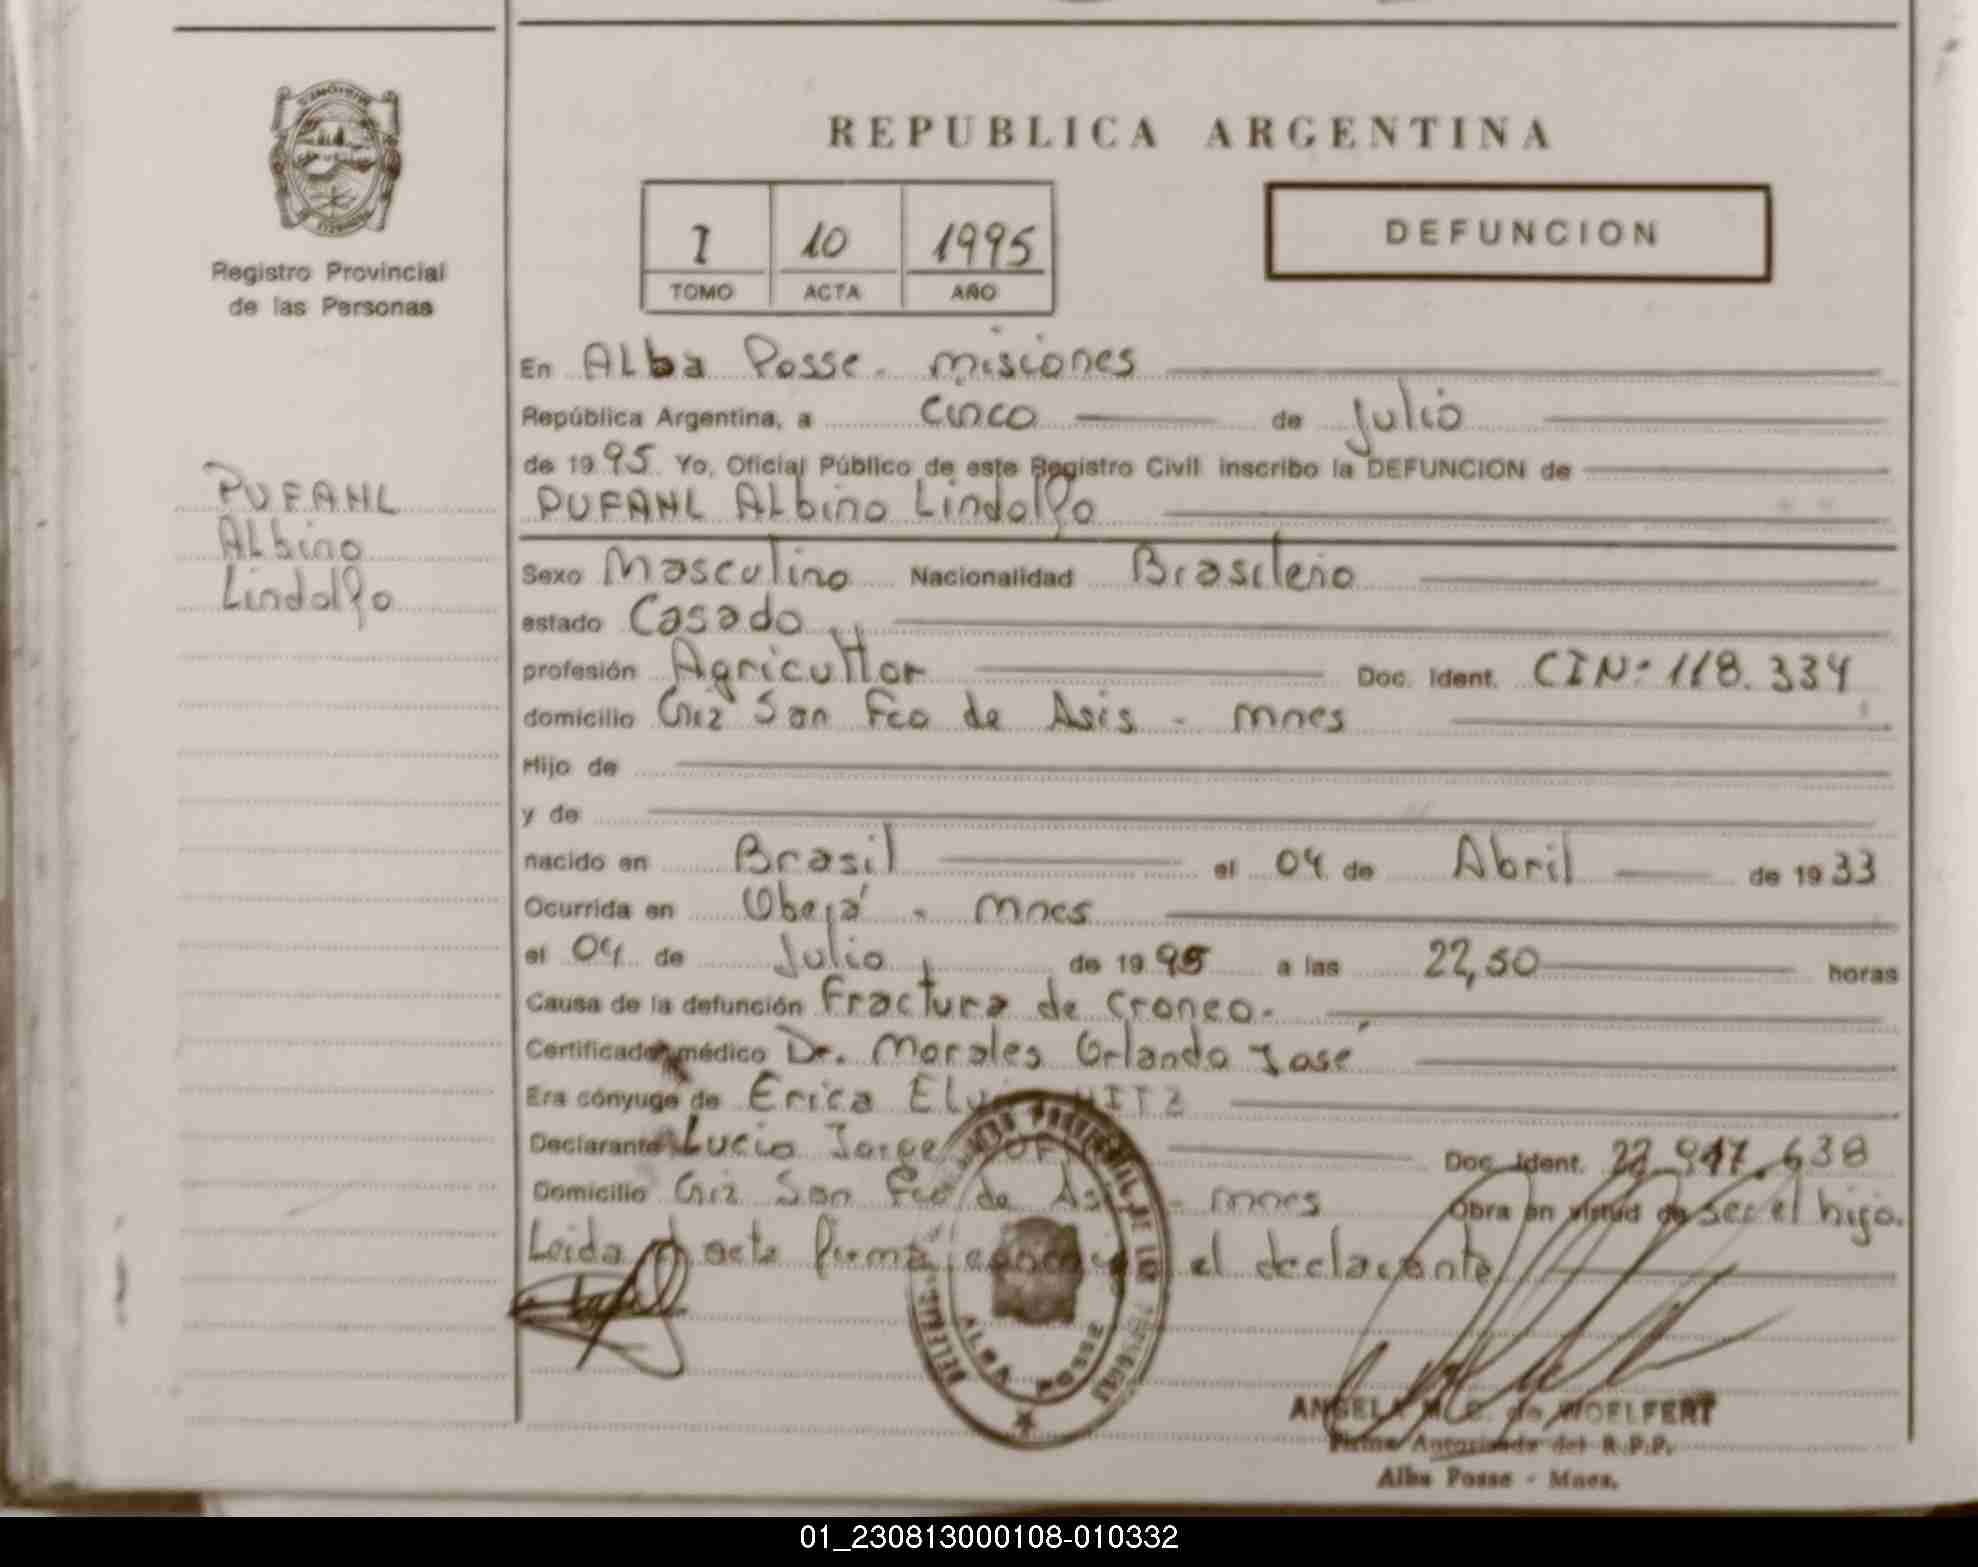 REPUBLICA ARGENTINA
Registro Provincial
de las Personas
1 10 1995
TOMO ACTA AÑO
DEFUNCION
PUFAHL
Albino
Lindolfo
En Alba Posse - misiones
República Argentina, a cinco de Julio
de 1995 Yo, Oficial Público de este Registro Civil inscribo la DEFUNCION de
PUFAHL Albino Lindolfo
Sexo Masculino Nacionalidad Brasileño
estado Casado
profesión Agricultor Doc. Ident. CIN: 118.334
domicilio San Fco de Asis - mnes
Hijo de
y de
nacido en Brasil el 04 de Abril de 1933
Ocurrida en Oberá - mnes
el 04 de Julio de 1995 a las 22,50 horas
Causa de la defunción Fractura de Craneo.
Certificado médico Dr. Morales Orlando José
Era cónyuge de Erica
Declarante Lucio Jorge Doc. Ident. 22.947.638
Domicilio San Fco de - mnes Obra en virtud de ser el hijo.
Leida el acta firma conmigo el declarante
ANGELA M. E. de WOELFERT
Firma Autorizada del R.P.P.
Alba Posse - Mnes.
01_230813000108-010332